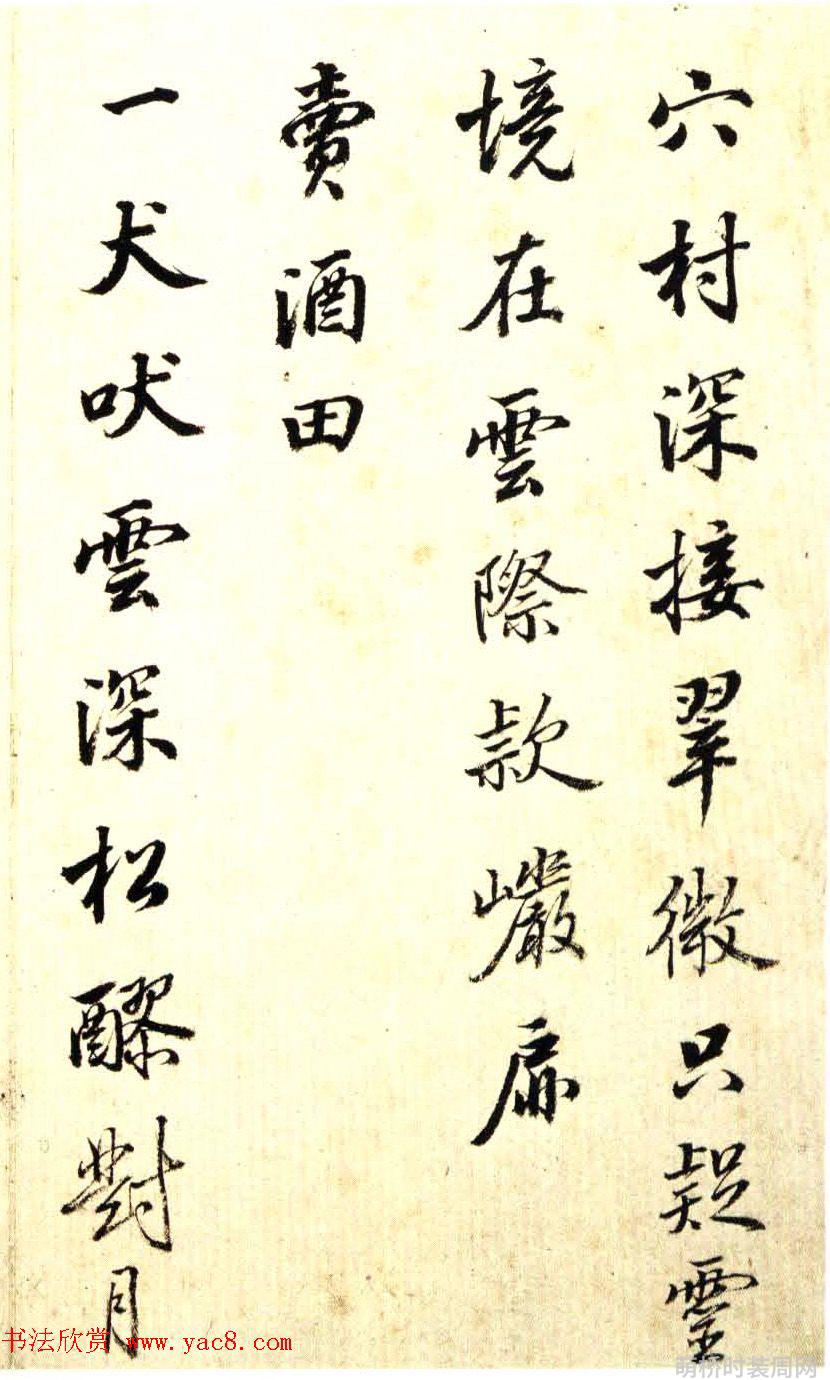 穴村深接翠微只疑靈
境在雲際款巖扉
賣酒田
一犬吠雲深松醪對月
书法欣赏 www.yac8.com
萌桥时装周网